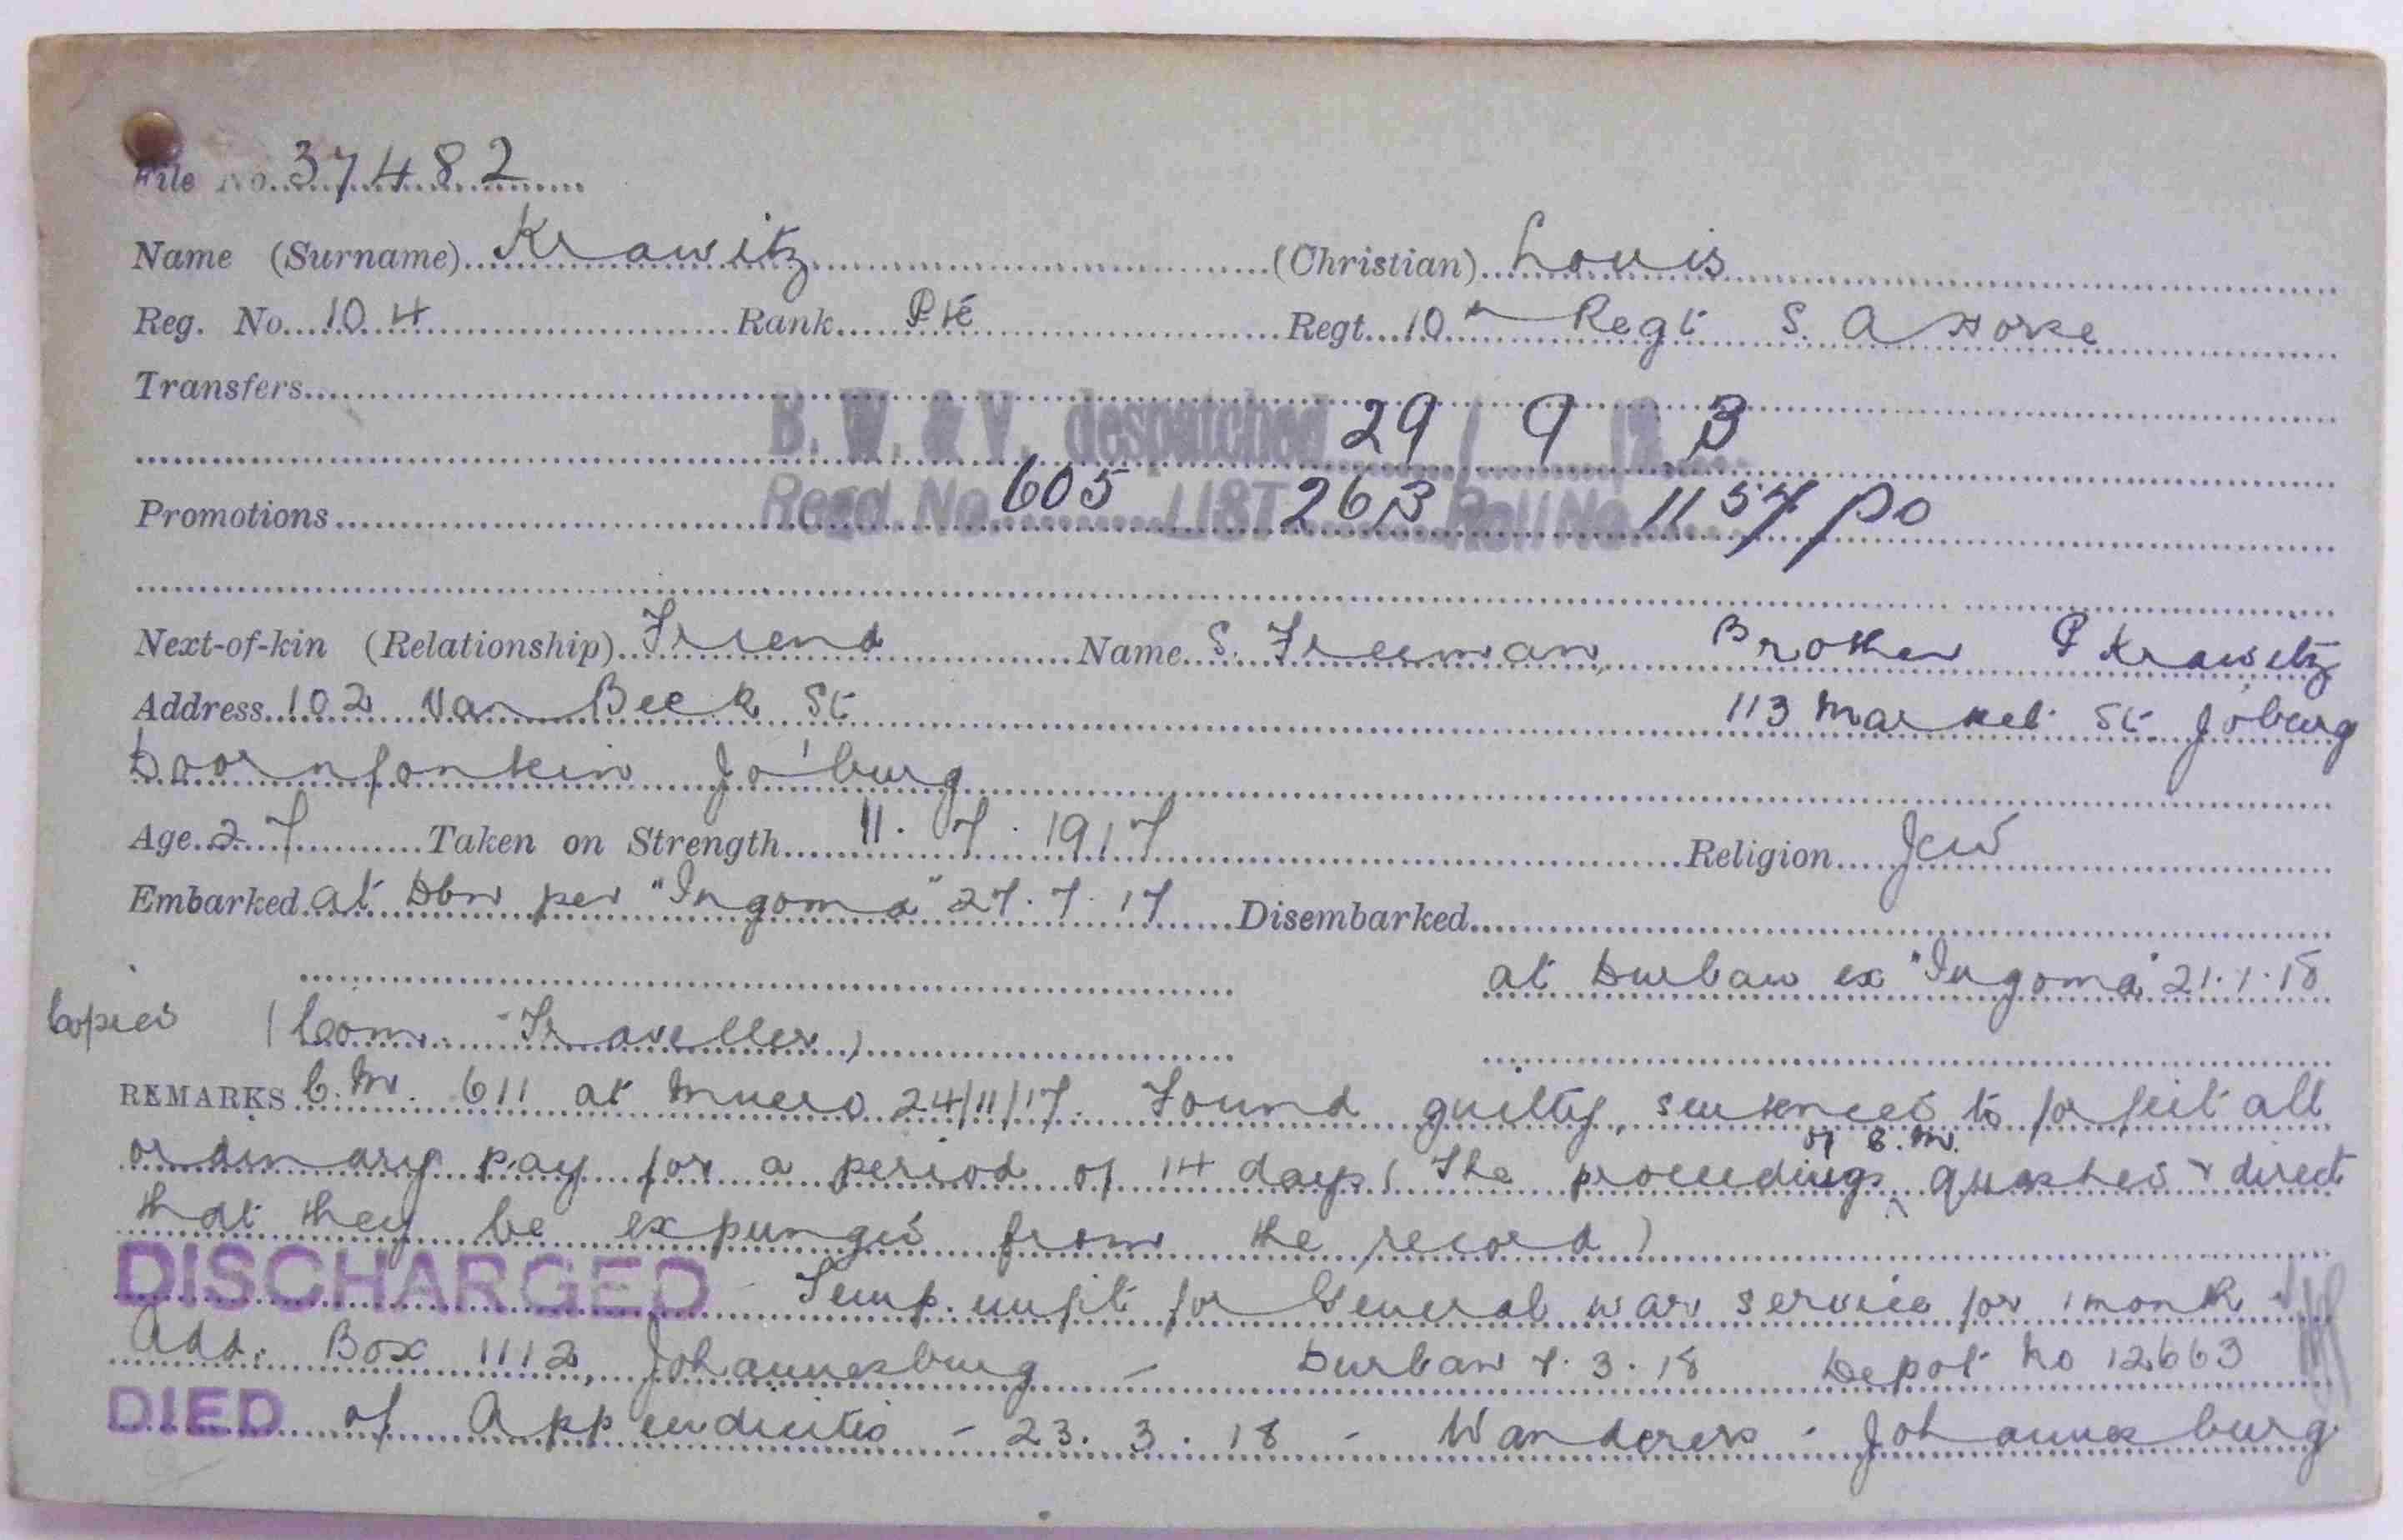 File No. 37482
Name (Surname) Krawitz (Christian) Louis
Reg. No. 104 Rank Pte Regt. 10th Regt S. A Horse
Transfers
B. W. & V. despatched 29 / 9 / 23
Regd. No. 605 LIST 263 Roll No. 1157 PO
Promotions
Next-of-kin (Relationship) Friend Name S. Freeman, Brother P Krawitz
Address 102 Van Beek St 113 Market St Jo'burg
Doornfontein Jo'burg
Age 27 Taken on Strength 11. 7. 1917 Religion Jew
Embarked at Dbn per "Ingoma" 27. 7. 17 Disembarked
at Durban ex "Ingoma" 21.1.18
Copied (Com. Traveller)
REMARKS C.M. 611 at Mnero 24/11/17. Found guilty, sentenced to forfeit all
ordinary pay for a period of 14 days (The proceedings of C.M. quashed & direct
that they be expunged from the record)
DISCHARGED - Temp. unfit for General war service for 1 month -
Add: Box 1112, Johannesburg - Durban 7. 3. 18 Depot No 12663
DIED of Appendicitis - 23. 3. 18 - Wanderers - Johannesburg